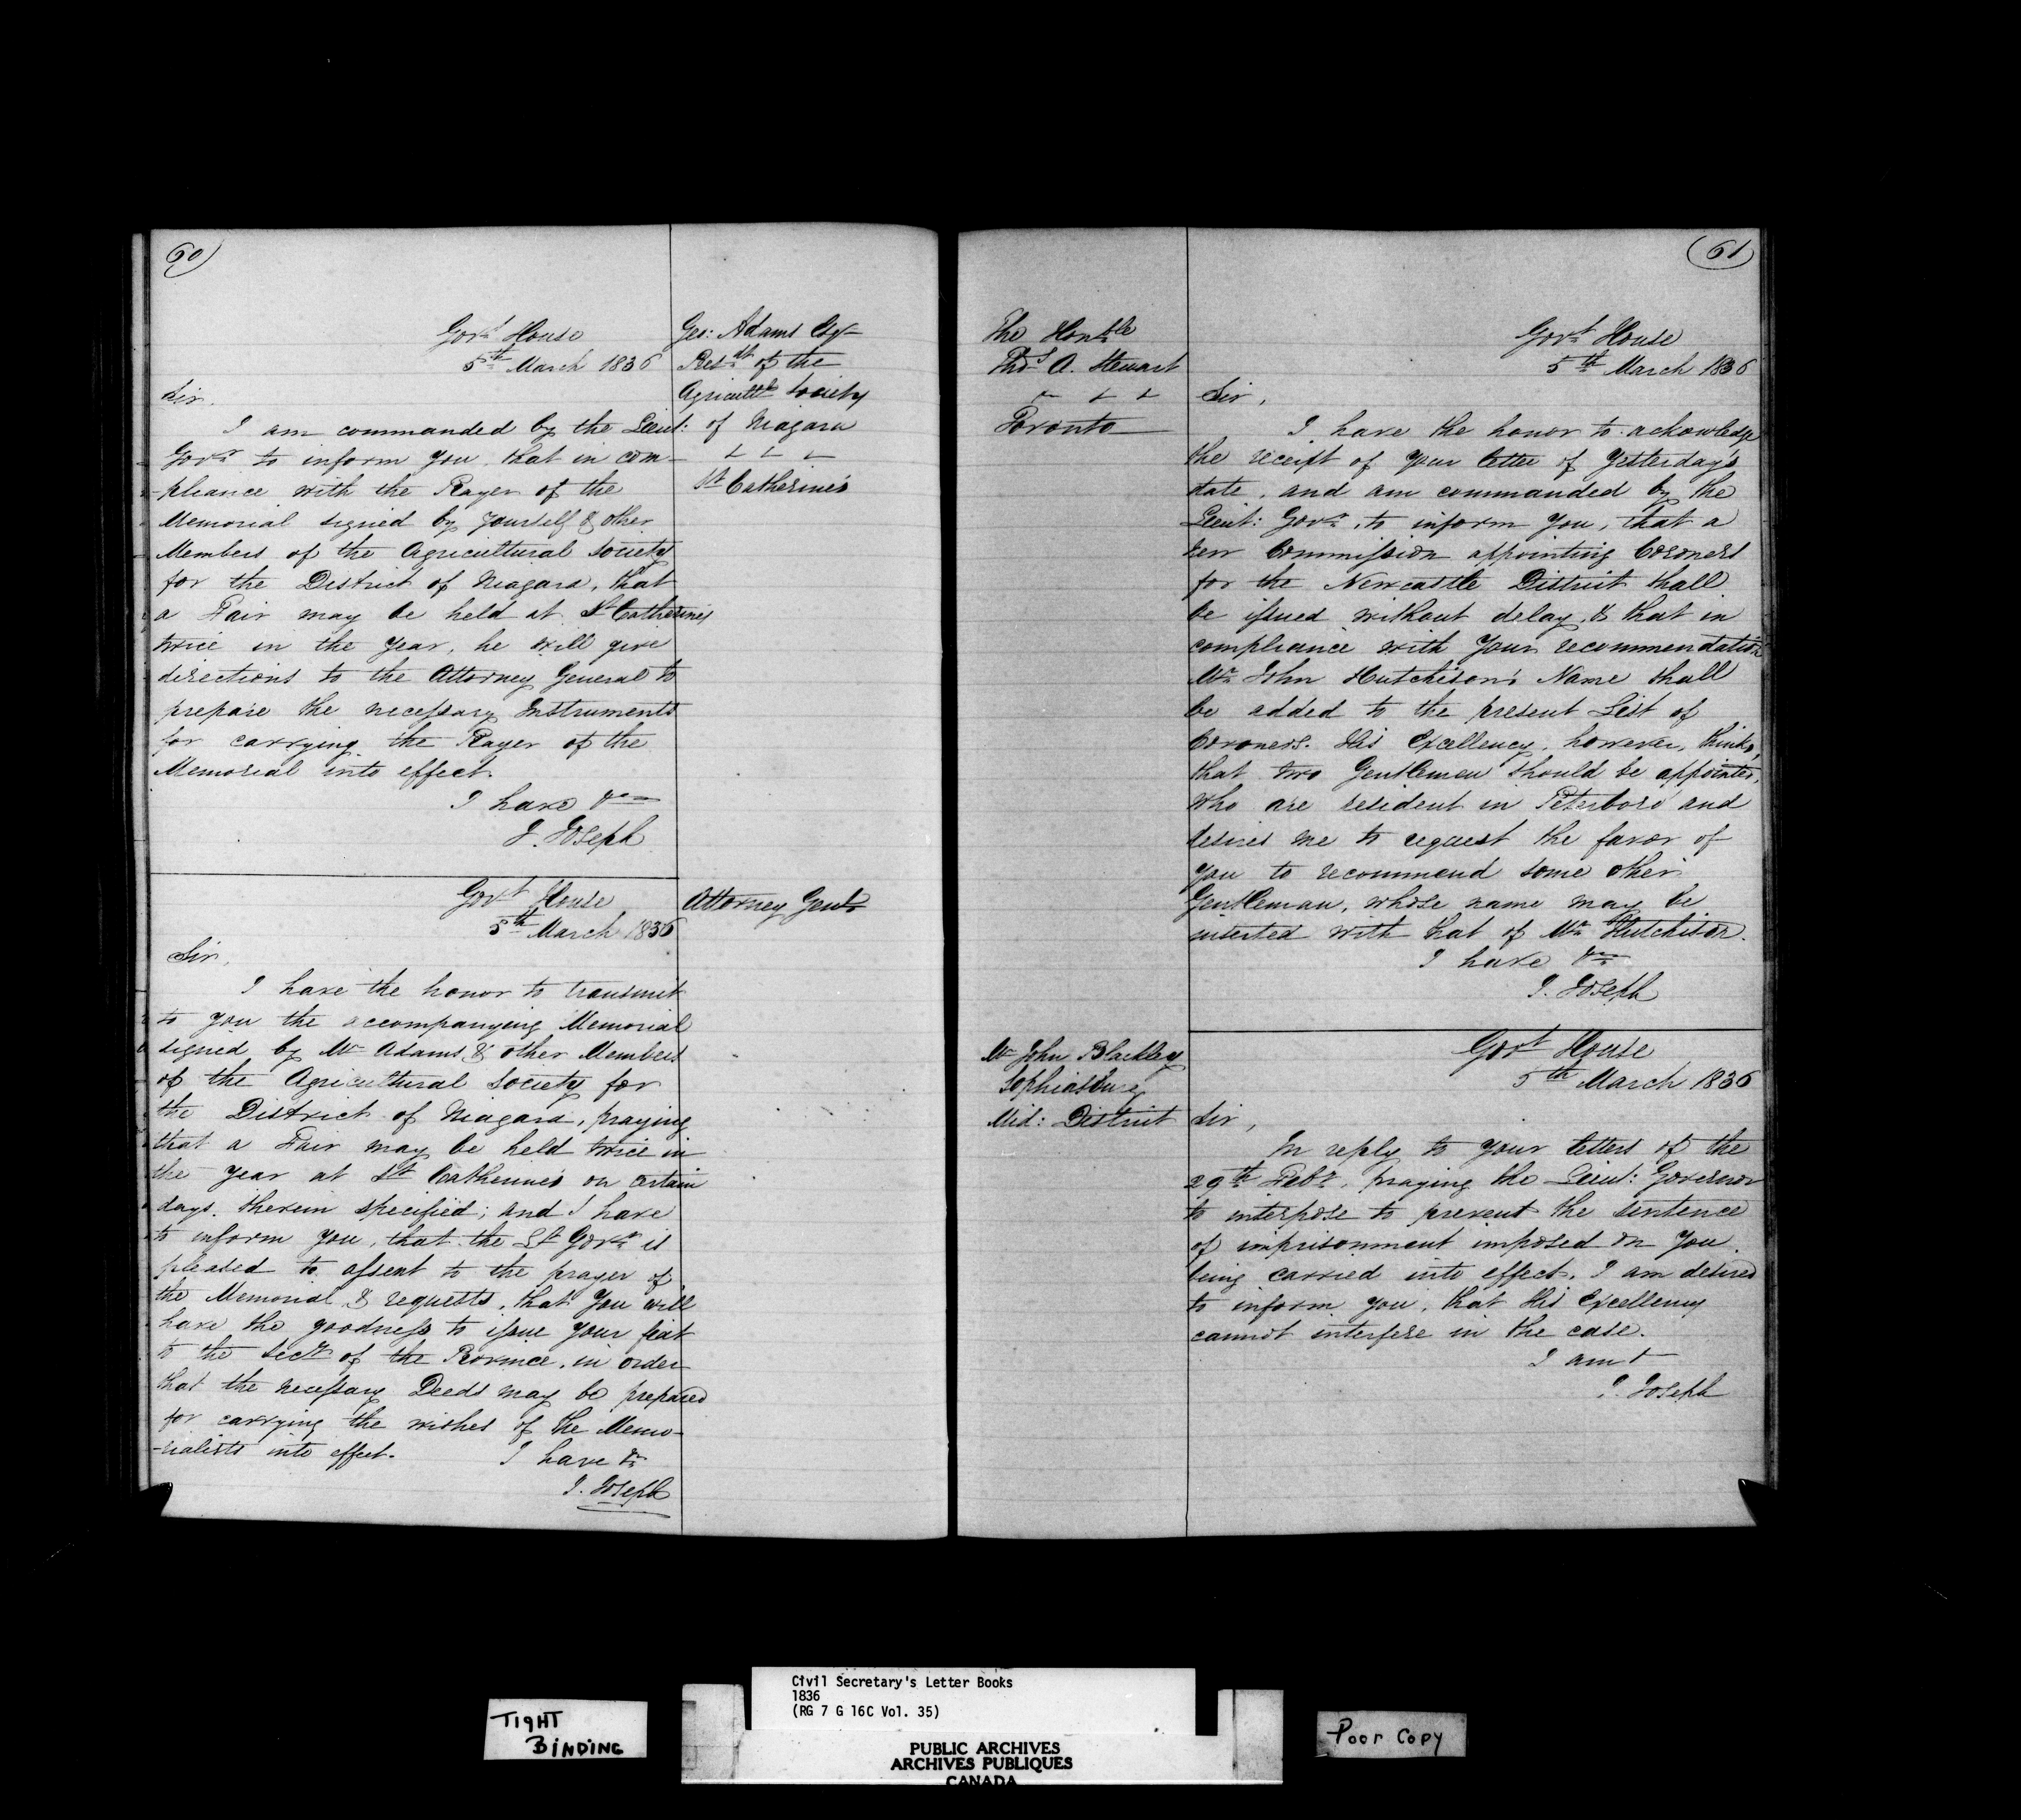 60
Govt House
5th March 1836
Geo: Adams Esqr
Presdt of the
Agricultl Society
of Niagara
St Catherine's
Sir,
I am commanded by the Lieut:
Govr to inform you, that in com-
pliance with the Prayer of the
Memorial signed by yourself & other
Members of the Agricultural Society
for the District of Niagara, that
a Fair may be held at St Catherines
twice in the year, he will give
directions to the Attorney General to
prepare the necessary Instruments
for carrying the Prayer of the
Memorial into effect.
I have &c
J. Joseph
Govt House
5th March 1836
Attorney Genl
Sir,
I have the honor to transmit
to you the accompanying Memorial
signed by Mr Adams & other Members
of the Agricultural Society for
the District of Niagara, praying
that a Fair may be held twice in
the year at St Catherine's on certain
days therein specified; and I have
to inform you, that the Lt Govr is
pleased to assent to the prayer of
the Memorial & requests, that you will
have the goodness to issue your fiat
to the Secy of the Province, in order
that the necessary Deeds may be prepared
for carrying the wishes of the Memo-
-rialists into effect.
I have &c
J. Joseph
61
The Honble
Thos A. Stewart
Toronto
Govt House
5th March 1836
Sir,
I have the honor to acknowledge
the receipt of your letter of Yesterday's
date, and am commanded by the
Lieut: Govr, to inform you, that a
new Commission appointing Coroners
for the Newcastle District shall
be issued without delay, & that in
compliance with your recommendation
Mr John Hutchison's Name shall
be added to the present List of
Coroners. His Excellency, however, thinks,
that two Gentlemen should be appointed,
who are resident in Peterboro' and
desires me to request the favor of
you to recommend some other
Gentleman, whose name may be
inserted with that of Mr Hutchison.
I have &c
J. Joseph
Mr John Blackley
Sophiasburg
Mid: District
Govt House
5th March 1836
Sir,
In reply to your letters of the
29th Feby, praying the Lieut: Governor
to interpose to prevent the sentence
of imprisonment imposed on you
being carried into effect, I am desired
to inform you, that His Excellency
cannot interfere in the case.
I am &
J. Joseph
TIGHT
BINDING
Civil Secretary's Letter Books
1836
(RG 7 G 16C Vol. 35)
PUBLIC ARCHIVES
ARCHIVES PUBLIQUES
CANADA
Poor Copy